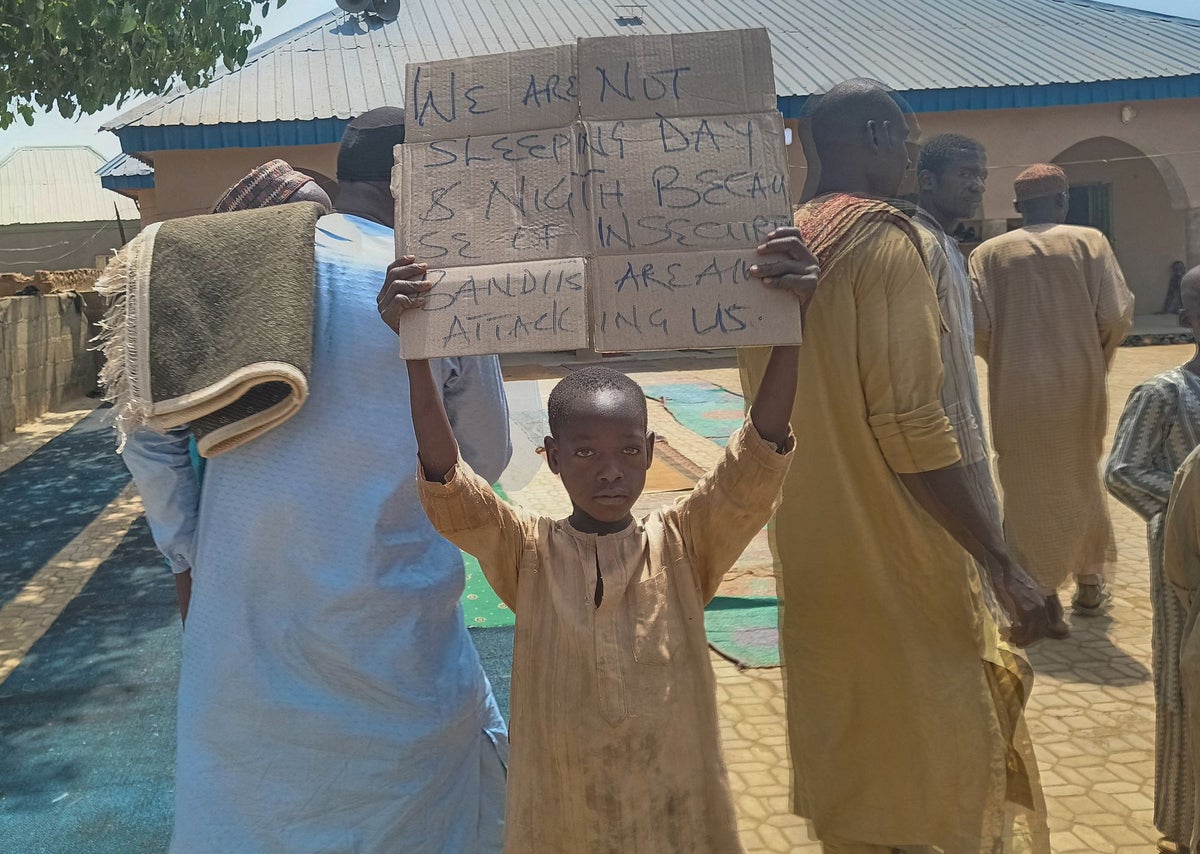 WE ARE NOT
SLEEPING DAY
& NIGTH BECAU
SE OF INSECURI
BANDITS ARE
ATTACKING US.